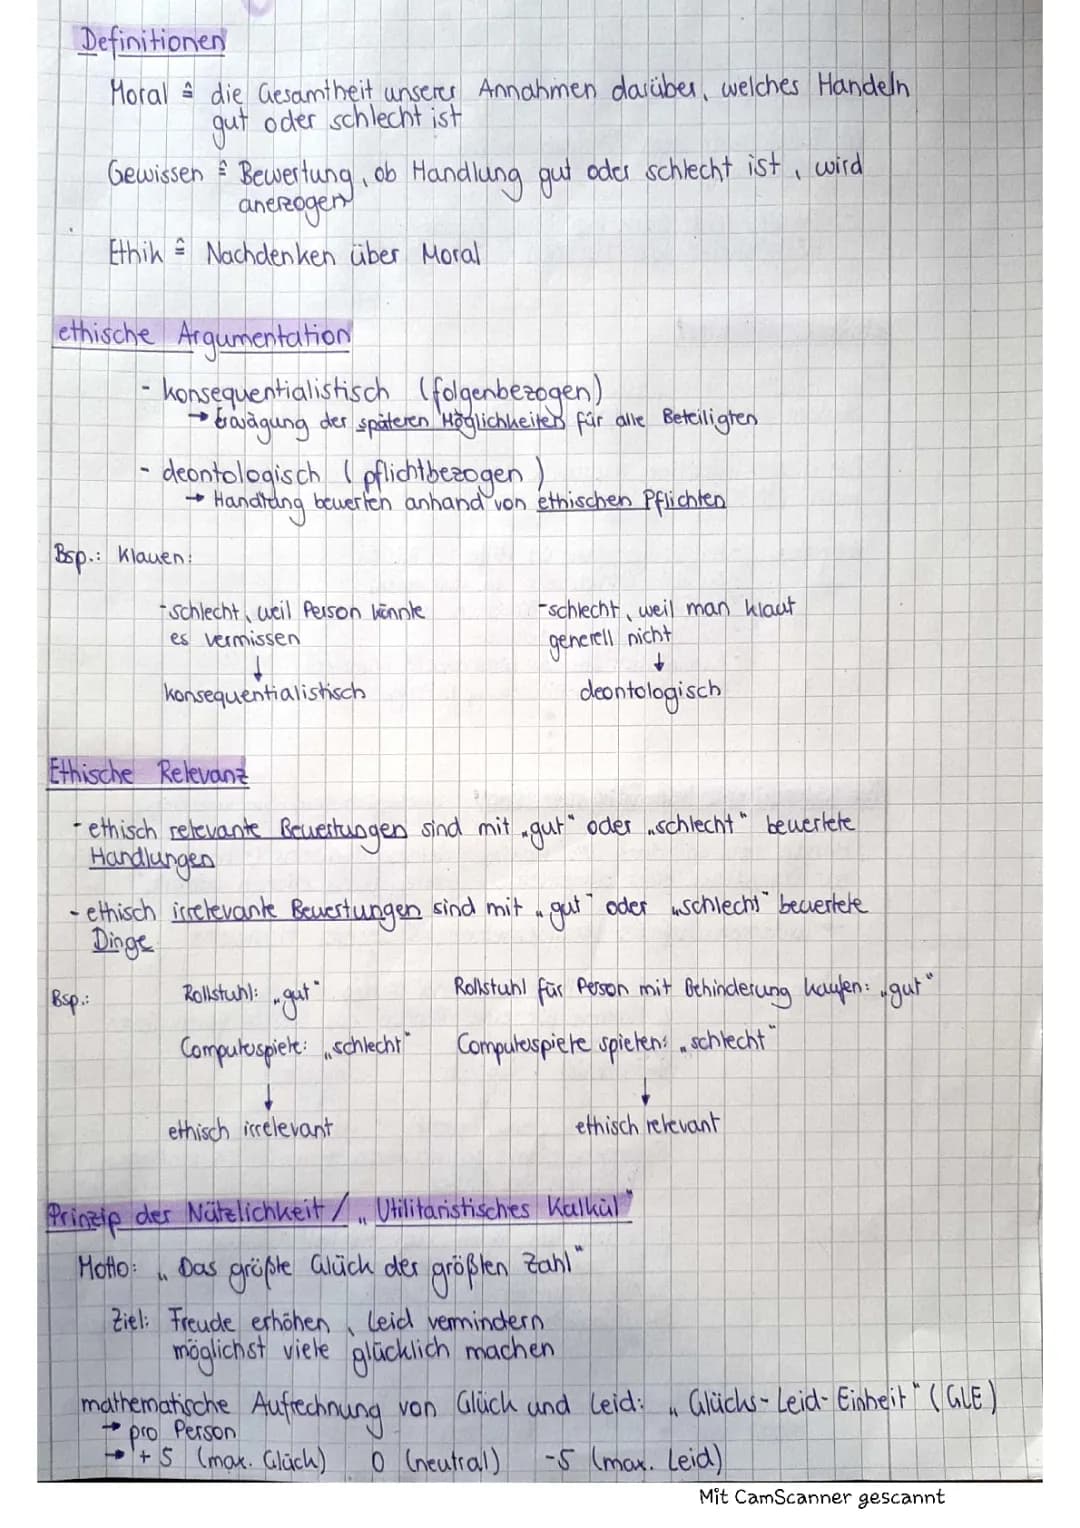 Definitionen
Moral ≙ die Gesamtheit unserer Annahmen darüber, welches Handeln
gut oder schlecht ist
Gewissen ≙ Bewertung, ob Handlung gut oder schlecht ist, wird
anerzogen
Ethik ≙ Nachdenken über Moral
ethische Argumentation
- konsequentialistisch (folgenbezogen)
→ Erwägung der späteren Möglichkeiten für alle Beteiligten
- deontologisch (pflichtbezogen)
→ Handlung bewerten anhand von ethischen Pflichten
Bsp.: Klauen:
- schlecht, weil Person könnte
es vermissen
↓
konsequentialistisch
- schlecht, weil man klaut
generell nicht
↓
deontologisch
Ethische Relevanz
- ethisch relevante Bewertungen sind mit „gut" oder „schlecht" bewertete
Handlungen
- ethisch irrelevante Bewertungen sind mit „gut" oder „schlecht" bewertete
Dinge
Bsp.: Rollstuhl: „gut"
Computerspiele: „schlecht"
↓
ethisch irrelevant
Rollstuhl für Person mit Behinderung kaufen: „gut"
Computerspiele spielen: „schlecht"
↓
ethisch relevant
Prinzip der Nützlichkeit / „Utilitaristisches Kalkül"
Motto: „Das größte Glück der größten Zahl"
Ziel: Freude erhöhen, Leid vermindern
möglichst viele glücklich machen
mathematische Aufrechnung von Glück und Leid: „Glücks-Leid-Einheit" (GLE)
→ pro Person
→ +5 (max. Glück) 0 (neutral) -5 (max. Leid)
Mit CamScanner gescannt